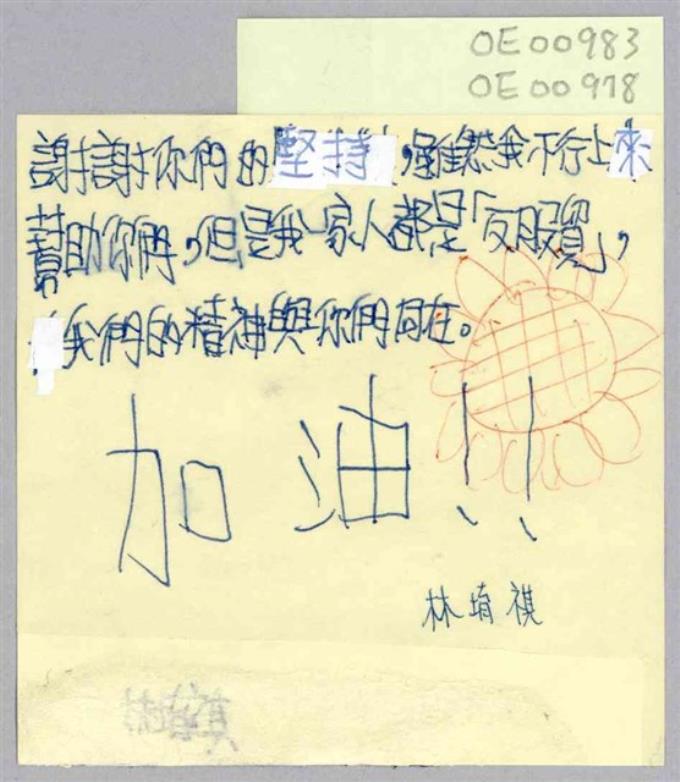 OE00983
OE00978
謝謝你們的堅持,雖然我不行上來
幫助你們,但是我一家人都是「反服貿」,
我們的精神與你們同在。
加油!!
林堉祺